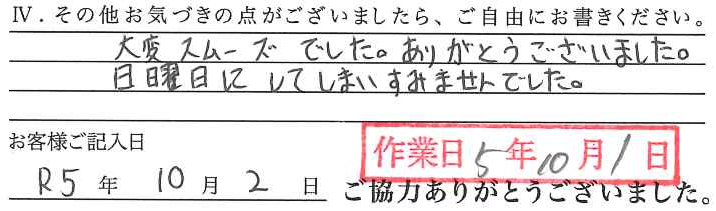 Ⅳ．その他お気づきの点がございましたら、ご自由にお書きください。
大変スムーズでした。ありがとうございました。
日曜日にしてしまいすみませんでした。
お客様ご記入日
作業日5年10月1日
R5年10月2日
ご協力ありがとうございました。